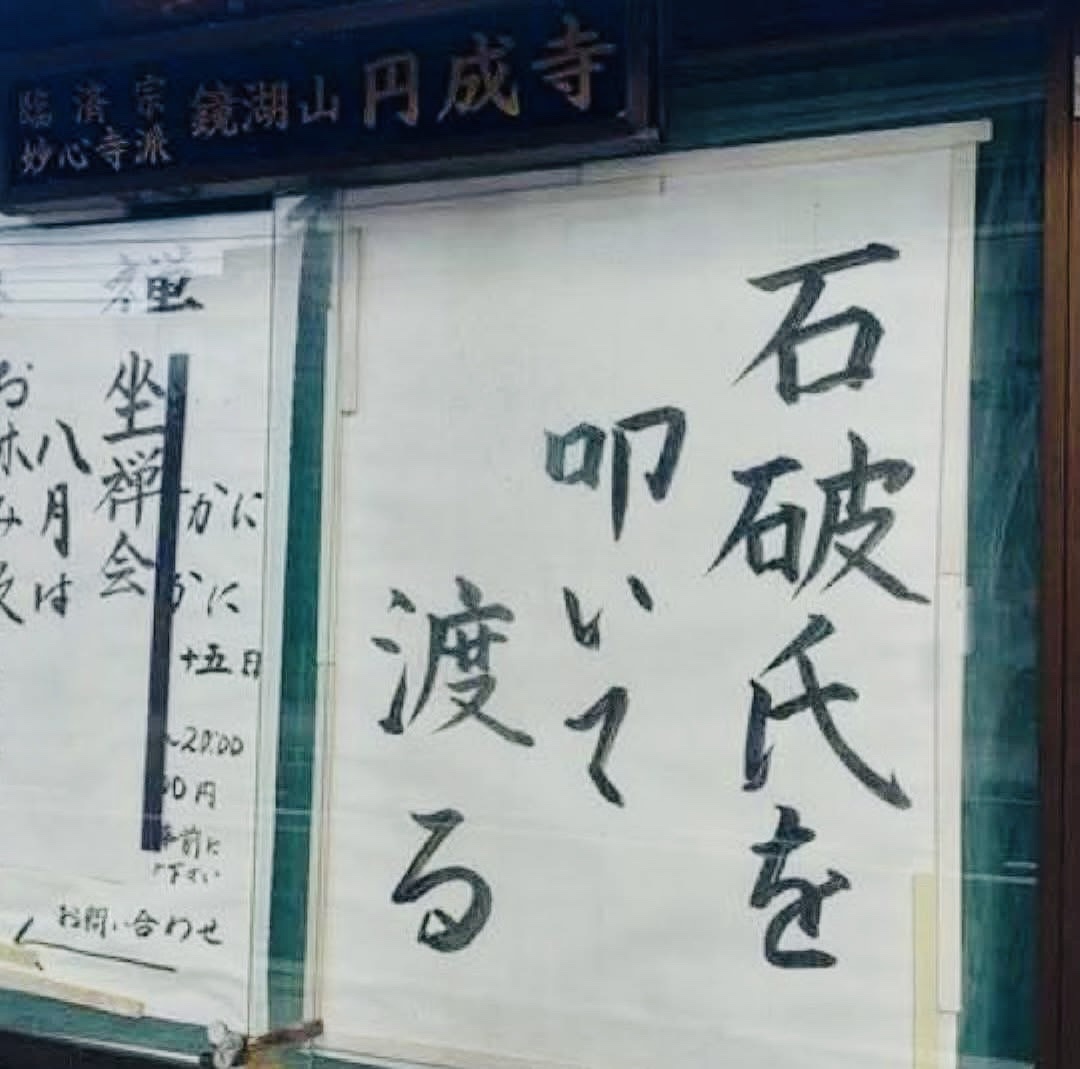 臨済宗
妙心寺派
鏡湖山 円成寺
石破氏を
叩いて
渡る
禅
かに
かに
十五日
~20:00
00円
前に
下さい
坐禅会
八月は
お休み
お問い合わせ